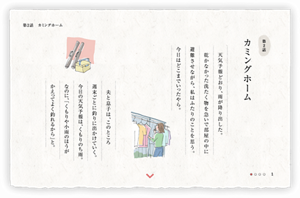 第2話 カミングホーム
第2話
カミングホーム
天気予報どおり、雨が降り出した。
乾かなかった洗たく物を急いで部屋の中に
避難させながら、私はふたりのことを思う。
今日はどこまでいったやら。
夫と息子は、このところ
週末ごとに釣りに出かけていく。
今日の天気予報は、くもりのち雨。
なのに、「くもりや小雨のほうが
かえってよく釣れるから」と。
1